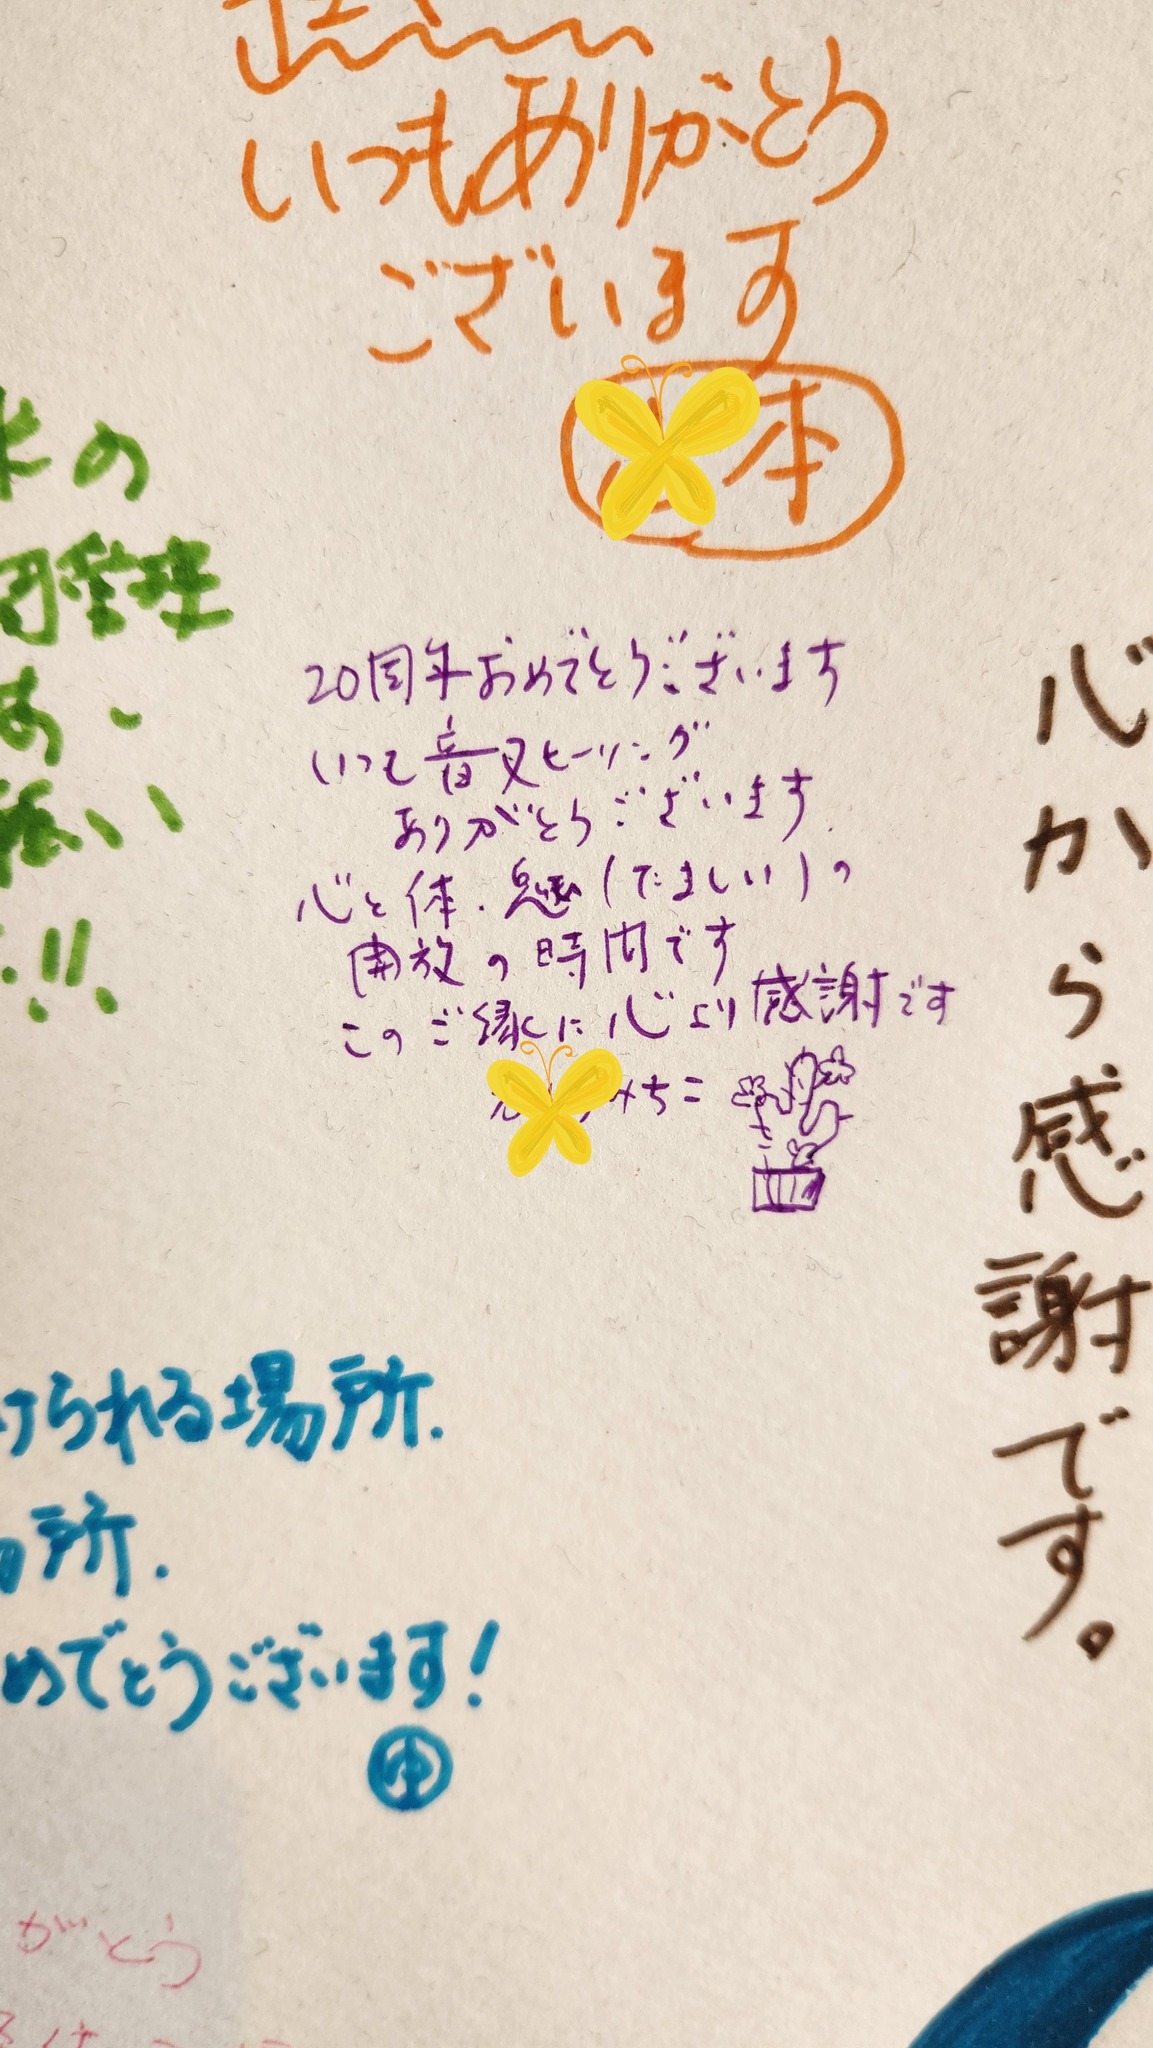 いつもありがとう
ございます
本
米の
整理
20周年おめでとうございます
いつも音叉ヒーリング
ありがとうございます
心と体.魂(たましい)の
開放の時間です
このご縁に心より感謝です
みちこ
心から感謝です。
けられる場所.
場所.
めでとうございます!
がとう